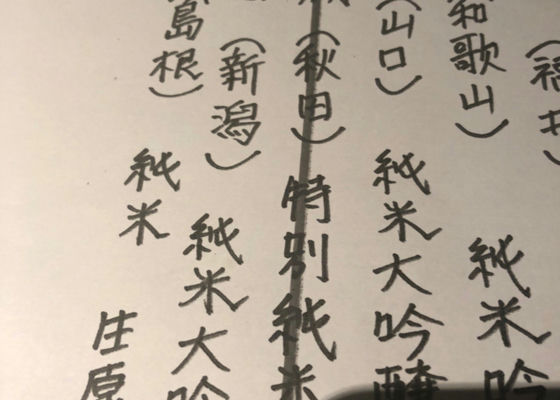 (福井)
和歌山) 純米吟
(山口) 純米大吟醸
(秋田) 特別純米
(新潟) 純米大吟
島根) 純米 庄原